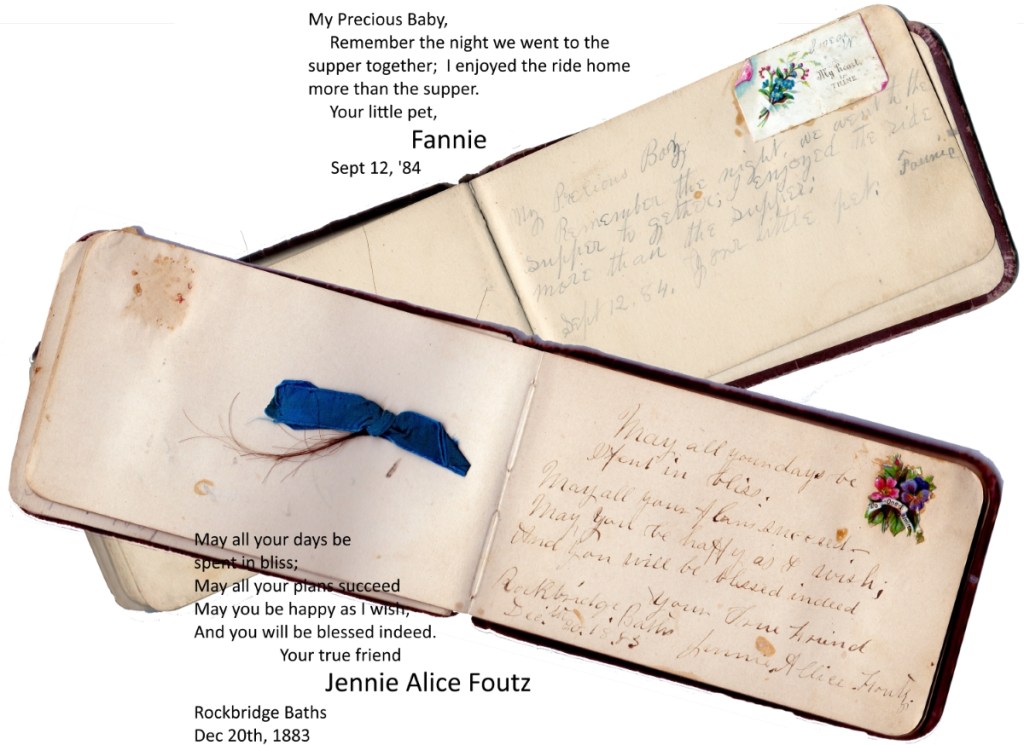 My Precious Baby,
Remember the night we went to the
supper together; I enjoyed the ride home
more than the supper.
Your little pet,
Fannie
Sept 12, '84
I mean
My heart
is
THINE
My Precious Baby
Remember the night, we went to the
supper to gether; I enjoyed the ride
more than the supper.
Your little pet. Fannie
Sept 12. 84.
May all your days be
spent in bliss.
May all your plans succeed
May you be happy as I wish;
And you will be blessed indeed
Your True friend
Rockbridge Baths
Dec. 20th 1883
Jennie Alice Foutz.
May all your days be
spent in bliss;
May all your plans succeed
May you be happy as I wish;
And you will be blessed indeed.
Your true friend
Jennie Alice Foutz
Rockbridge Baths
Dec 20th, 1883